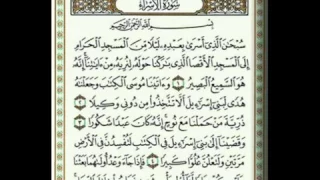 سُورَةُ الإِسْرَاءِ
بِسْمِ اللَّهِ الرَّحْمَٰنِ الرَّحِيمِ
سُبْحَٰنَ الَّذِي أَسْرَىٰ بِعَبْدِهِ لَيْلًا مِّنَ الْمَسْجِدِ الْحَرَامِ
إِلَى الْمَسْجِدِ الْأَقْصَا الَّذِي بَٰرَكْنَا حَوْلَهُ لِنُرِيَهُ مِنْ ءَايَٰتِنَا إِنَّهُ
هُوَ السَّمِيعُ الْبَصِيرُ ١ وَءَاتَيْنَا مُوسَى الْكِتَٰبَ وَجَعَلْنَٰهُ
هُدًى لِّبَنِي إِسْرَٰءِيلَ أَلَّا تَتَّخِذُوا مِن دُونِي وَكِيلًا ٢
ذُرِّيَّةَ مَنْ حَمَلْنَا مَعَ نُوحٍ إِنَّهُ كَانَ عَبْدًا شَكُورًا ٣
وَقَضَيْنَا إِلَىٰ بَنِي إِسْرَٰءِيلَ فِي الْكِتَٰبِ لَتُفْسِدُنَّ فِي الْأَرْضِ
مَرَّتَيْنِ وَلَتَعْلُنَّ عُلُوًّا كَبِيرًا ٤ فَإِذَا جَاءَ وَعْدُ أُولَىٰهُمَا بَعَثْنَا